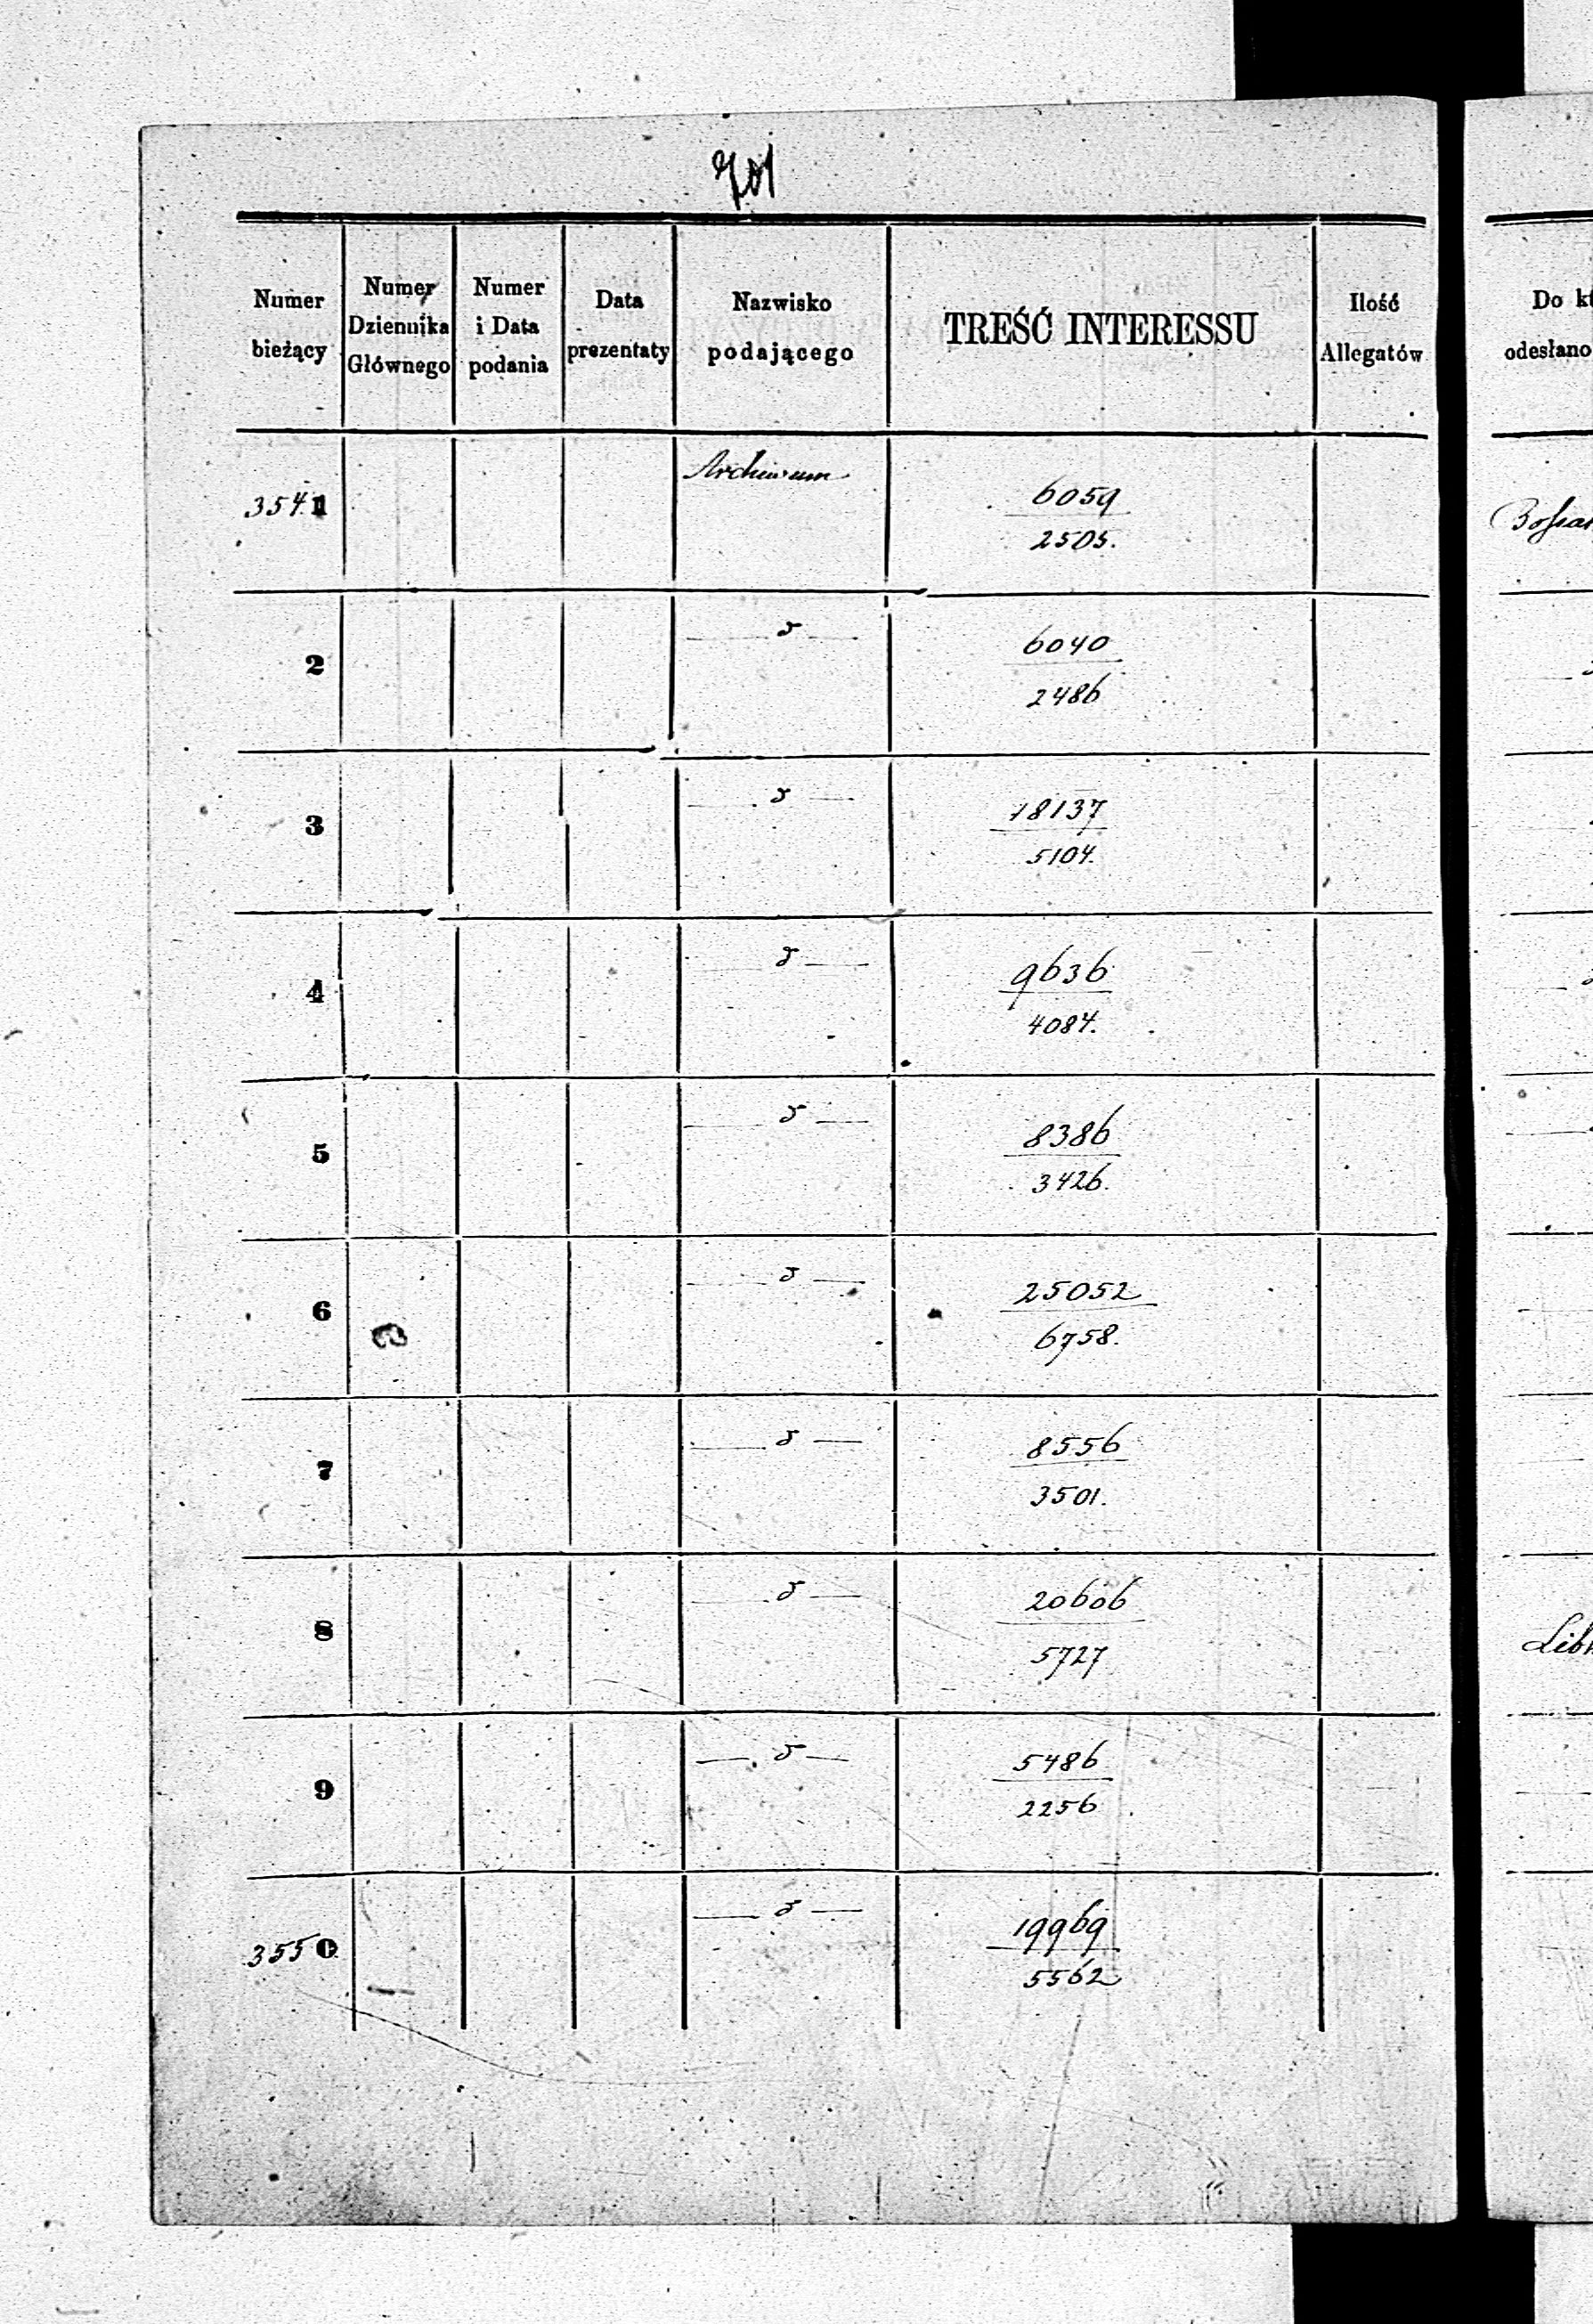 701
Numer bieżący
Numer Dziennika Głównego
Numer i Data podania
Data prezentaty
Nazwisko podającego
TREŚĆ INTERESSU
Ilość Allegatów
3541 Archiwum 6059
2505.
2 6040
2486
3 18137
5104.
4 9636
4084.
5 8386
3426.
6 25052
6758.
7 8556
3501.
8 20606
5727
9 5486
2256
3550 19969
5562
Do
odesłano